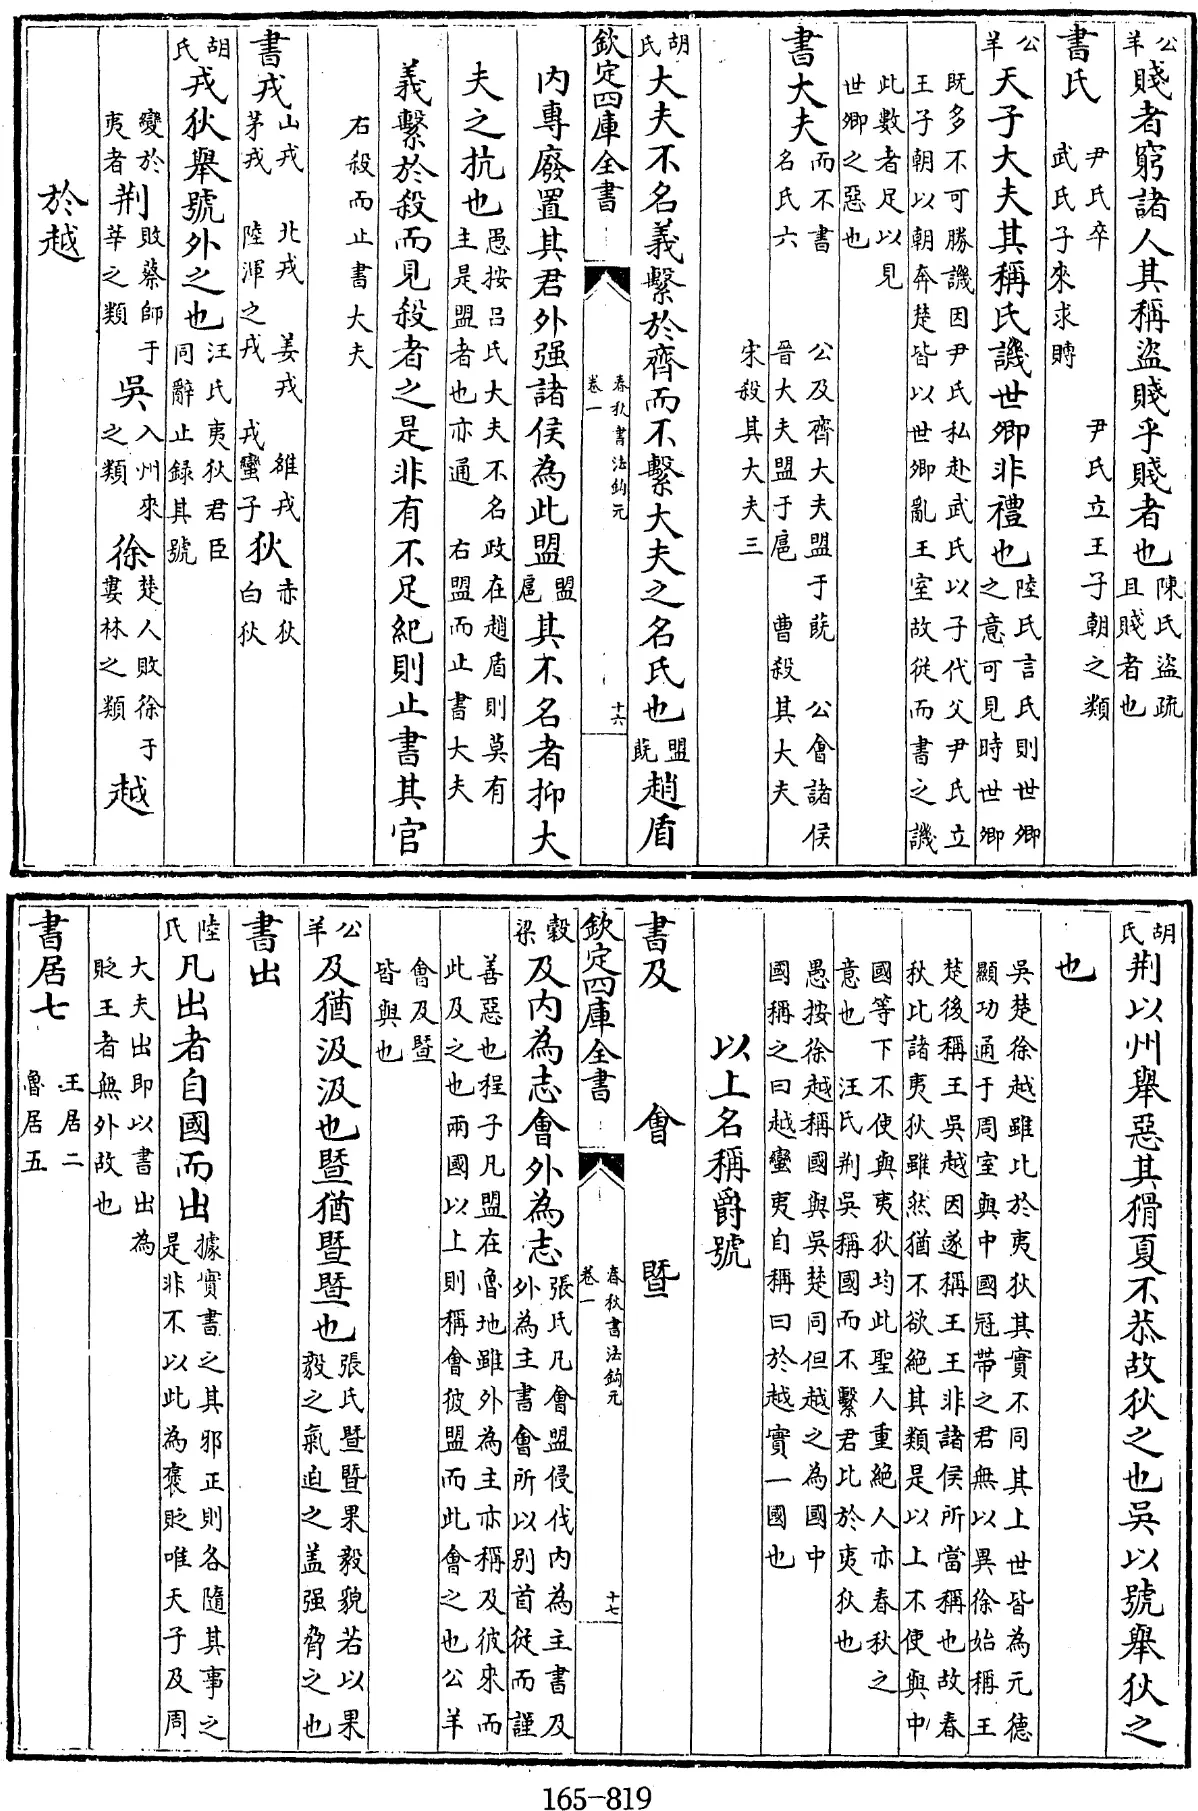 公羊賤者窮諸人其稱盜賤乎賤者也陳氏盜疏且賤者也
書氏 尹氏卒 尹氏立王子朝之類
武氏子來求賻
公羊天子大夫其稱氏譏世卿非禮也陸氏言氏則世卿之意可見時世卿
既多不可勝譏因尹氏私赴武氏以子代父尹氏立
王子朝以朝奔楚皆以世卿亂王室故從而書之譏
此數者足以見
世卿之惡也
書大夫而不書名氏六 公及齊大夫盟于蔇 公會諸侯
晉大夫盟于扈 曹殺其大夫
宋殺其大夫三
胡氏大夫不名義繫於齊而不繫大夫之名氏也盟蔇趙盾
欽定四庫全書 春秋書法鉤元 卷一 十六
內專廢置其君外强諸侯為此盟盟扈其不名者抑大
夫之抗也愚按呂氏大夫不名政在趙盾則莫有主是盟者也亦通 右盟而止書大夫
義繫於殺而見殺者之是非有不足紀則止書其官
右殺而止書大夫
書戎山戎 北戎 姜戎 雒戎 茅戎 陸渾之戎 戎蠻子 狄赤狄 白狄
胡氏戎狄舉號外之也汪氏夷狄君臣同辭止録其號
變於夷者荆敗蔡師于莘之類 吳入州來之類 徐楚人敗徐于婁林之類 越
於越
胡氏荆以州舉惡其猾夏不恭故狄之也吳以號舉狄之
也
吳楚徐越雖比於夷狄其實不同其上世皆為元德
顯功通于周室與中國冠帶之君無以異徐始稱王
楚後稱王吳越因遂稱王王非諸侯所當稱也故春
秋比諸夷狄雖然猶不欲絶其類是以上不使與中
國等下不使與夷狄均此聖人重絶人亦春秋之
意也 汪氏荆吳稱國而不繫君比於夷狄也
愚按徐越稱國與吳楚同但越之為國中
國稱之曰越蠻夷自稱曰於越實一國也
以上名稱爵號
書及 會 暨
欽定四庫全書 春秋書法鉤元 卷一 十七
穀梁及內為志會外為志張氏凡會盟侵伐內為主書及外為主書會所以别首從而謹
善惡也程子凡盟在魯地雖外為主亦稱及彼來而
此及之也兩國以上則稱會彼盟而此會之也公羊
會及暨
皆與也
公羊及猶汲汲也暨猶暨暨也張氏暨暨果毅貌若以果毅之氣迫之盖强脅之也
書出
陸氏凡出者自國而出據實書之其邪正則各隨其事之是非不以此為褒貶唯天子及周
大夫出即以書出為
貶王者無外故也
書居七 王居二
魯居五
165-819